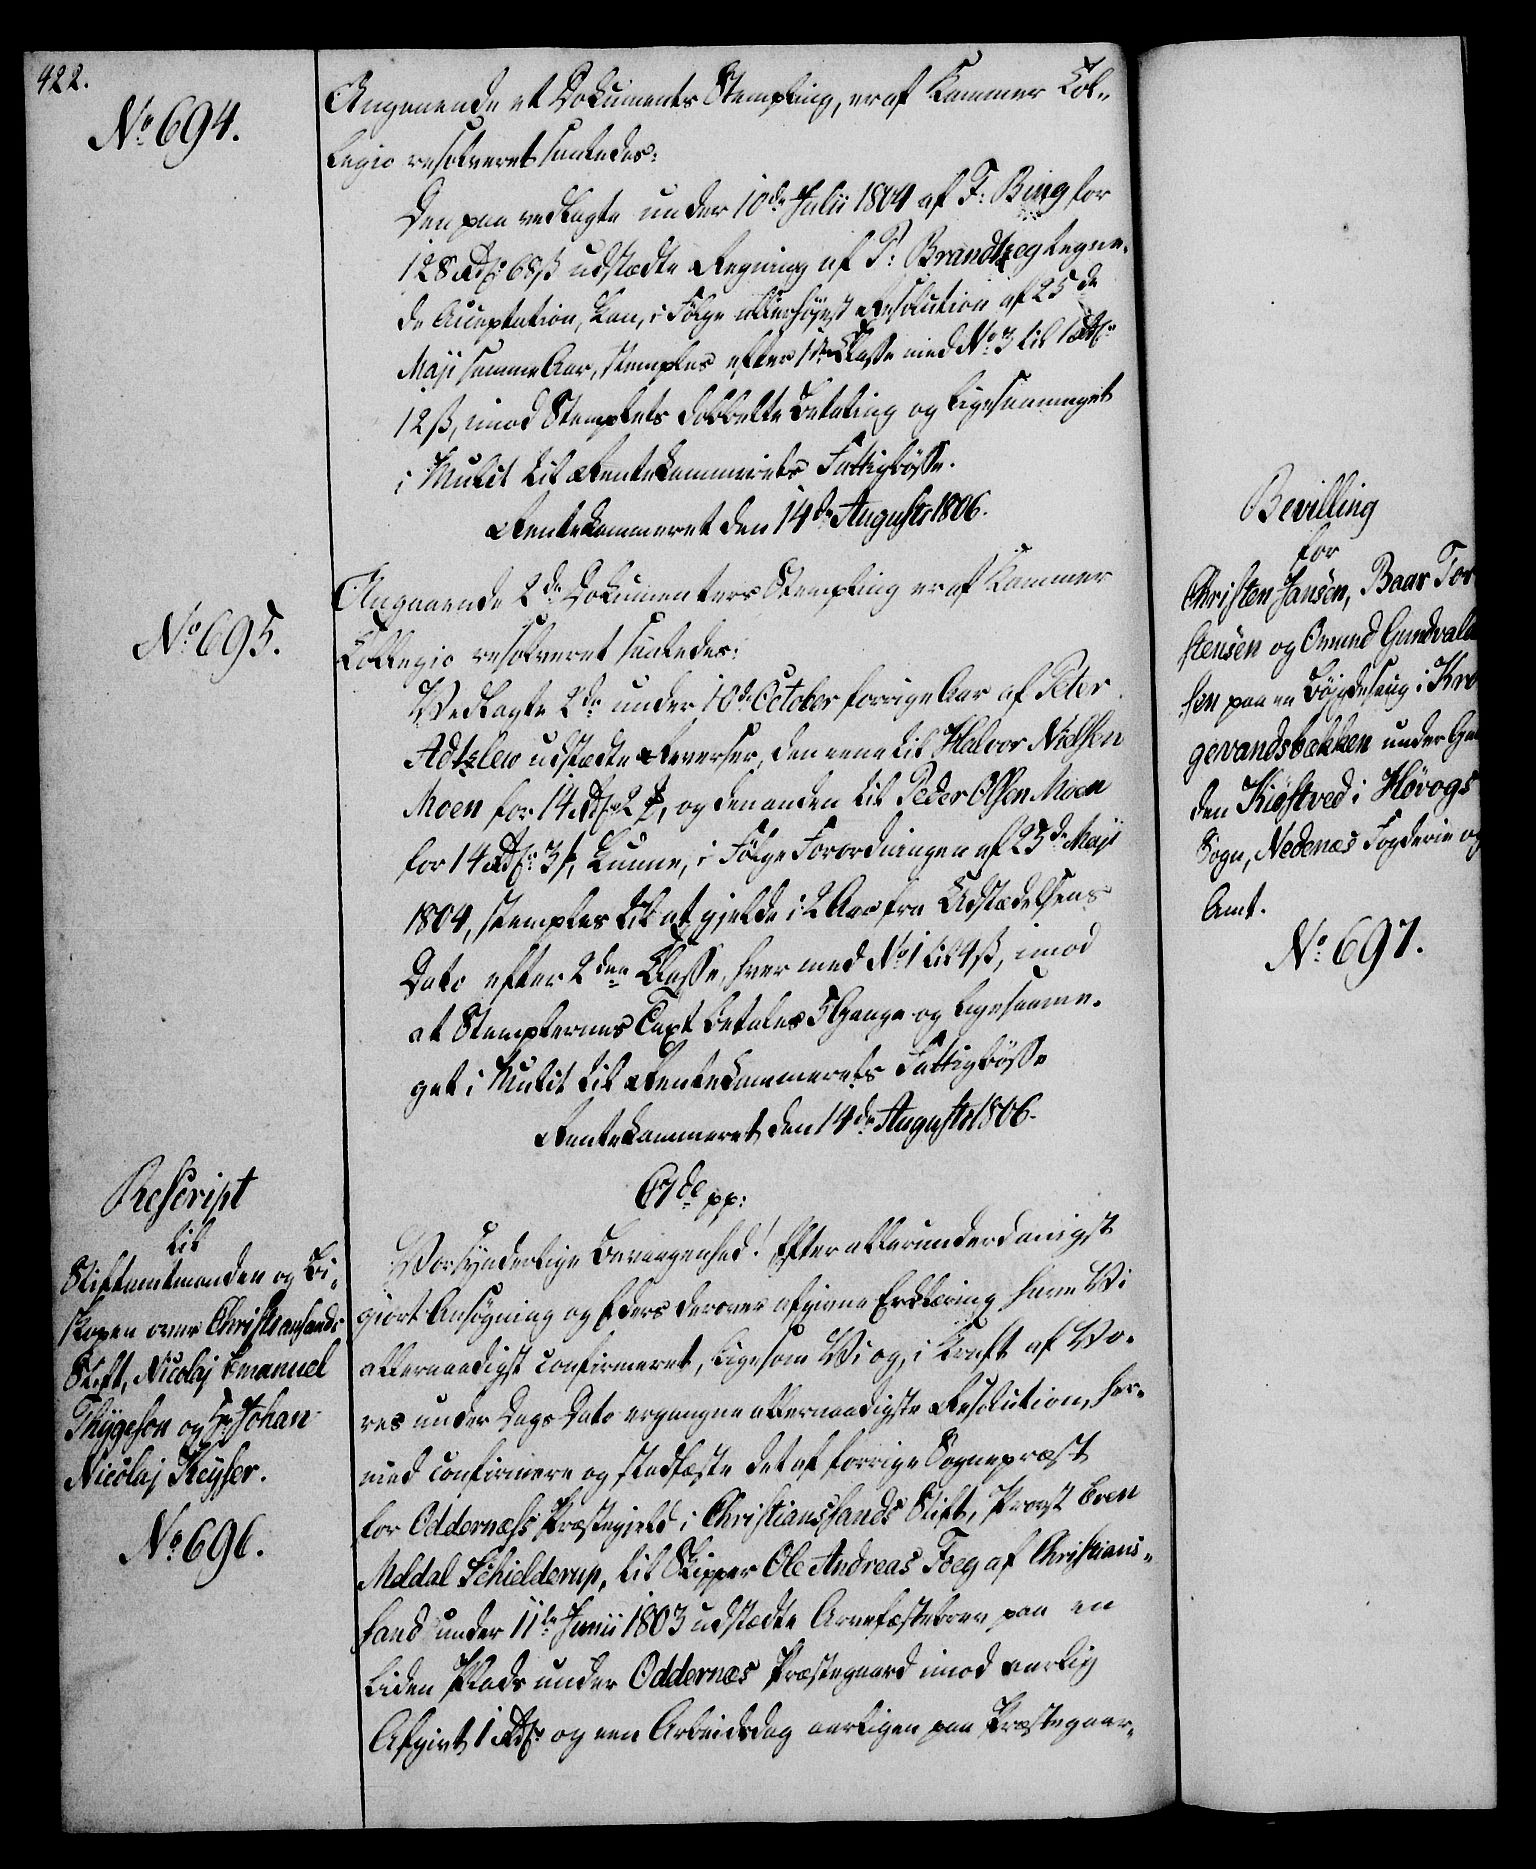 422.
No 694.
Angaaende et Dokuments Stempling, er af Kammer Col-
legio resolveret saaledes:
Den paa vedlagte under 10de Julii 1804 af F: Bing for
128 Rdr 68 ß udstædte Regning af P: Brandtzeg tegne-
de Acceptation, kan, i Følge allerhøyest Resolution af 25de
Maji samme Aar, stemples efter 1ste Classe med No 3 til 1 Rdr
12 ß, imod Stemplets dobbelte Betaling og ligesaameget
i Mulct til Rentekammerets Fattigbøsse.
Rentekammeret den 14de Augusti 1806.
No 695.
Angaaende 2de Dokumenters Stempling er af Kammer
Collegio resolveret saaledes:
Vedlagte 2de under 10de October forrige Aar af Peter
Adtzlew udstædte Reverser, den eene til Halvor Nielsen
Moen for 14 Rdr 2 , og den anden til Peder Olsen Moen
for 14 Rdr: 3 , kunne, i Følge Forordningen af 23de Maji
1804, stemples til at gjelde i 2 Aar fra Udstædelsens
Dato efter 2den Classe, hver med No 1 til 4 ß, imod
at Stemplernes Taxt betales 5 Gange og ligesaame-
get i Mulct til Rentekammerets Fattigbøsse
Rentekammeret den 14de Augusti 1806.
Rescript
til
Stiftamtmanden og Bi-
skopen over Christiansands
Stift, Nicolaj Emanuel
Thygeson og Hr Johan
Nicolaj Keyser.
No 696.
C7de pp:
Vor synderlige Bevaagenhed! Efter allerunderdanigst
giort Ansøgning og Eders derover afgivne Erklæring have Vi
allernaadigst confirmeret, ligesom Vi og, i Kraft af Vo-
res under Dags Dato ergangne allernaadigste Resolution, her-
med confirmere og stadfæste det af forrige Sognepræst
for Oddernæss Præstegield i Christianssands Stift, Provst Even
Meldal Schielderup, til Skipper Ole Andreas Foeg af Christians-
sand under 11te Junii 1803 udstædte Arvefæstebrev paa en
liden Plads under Oddernæs Præstegaard imod aarlig
Afgivt 1 Rdr og een Arbeidsdag aarligen paa Præstegaar-
Bevilling
for
Christen Jansen, Baar Tor
stensen og Omund Gundvald
sen paa en Bøygdesaug i Kro
gevandsbækken under Gaar
den Kiøstved i Høvogs
Sogn, Nedenæs Fogderie og
Amt.
No 697.